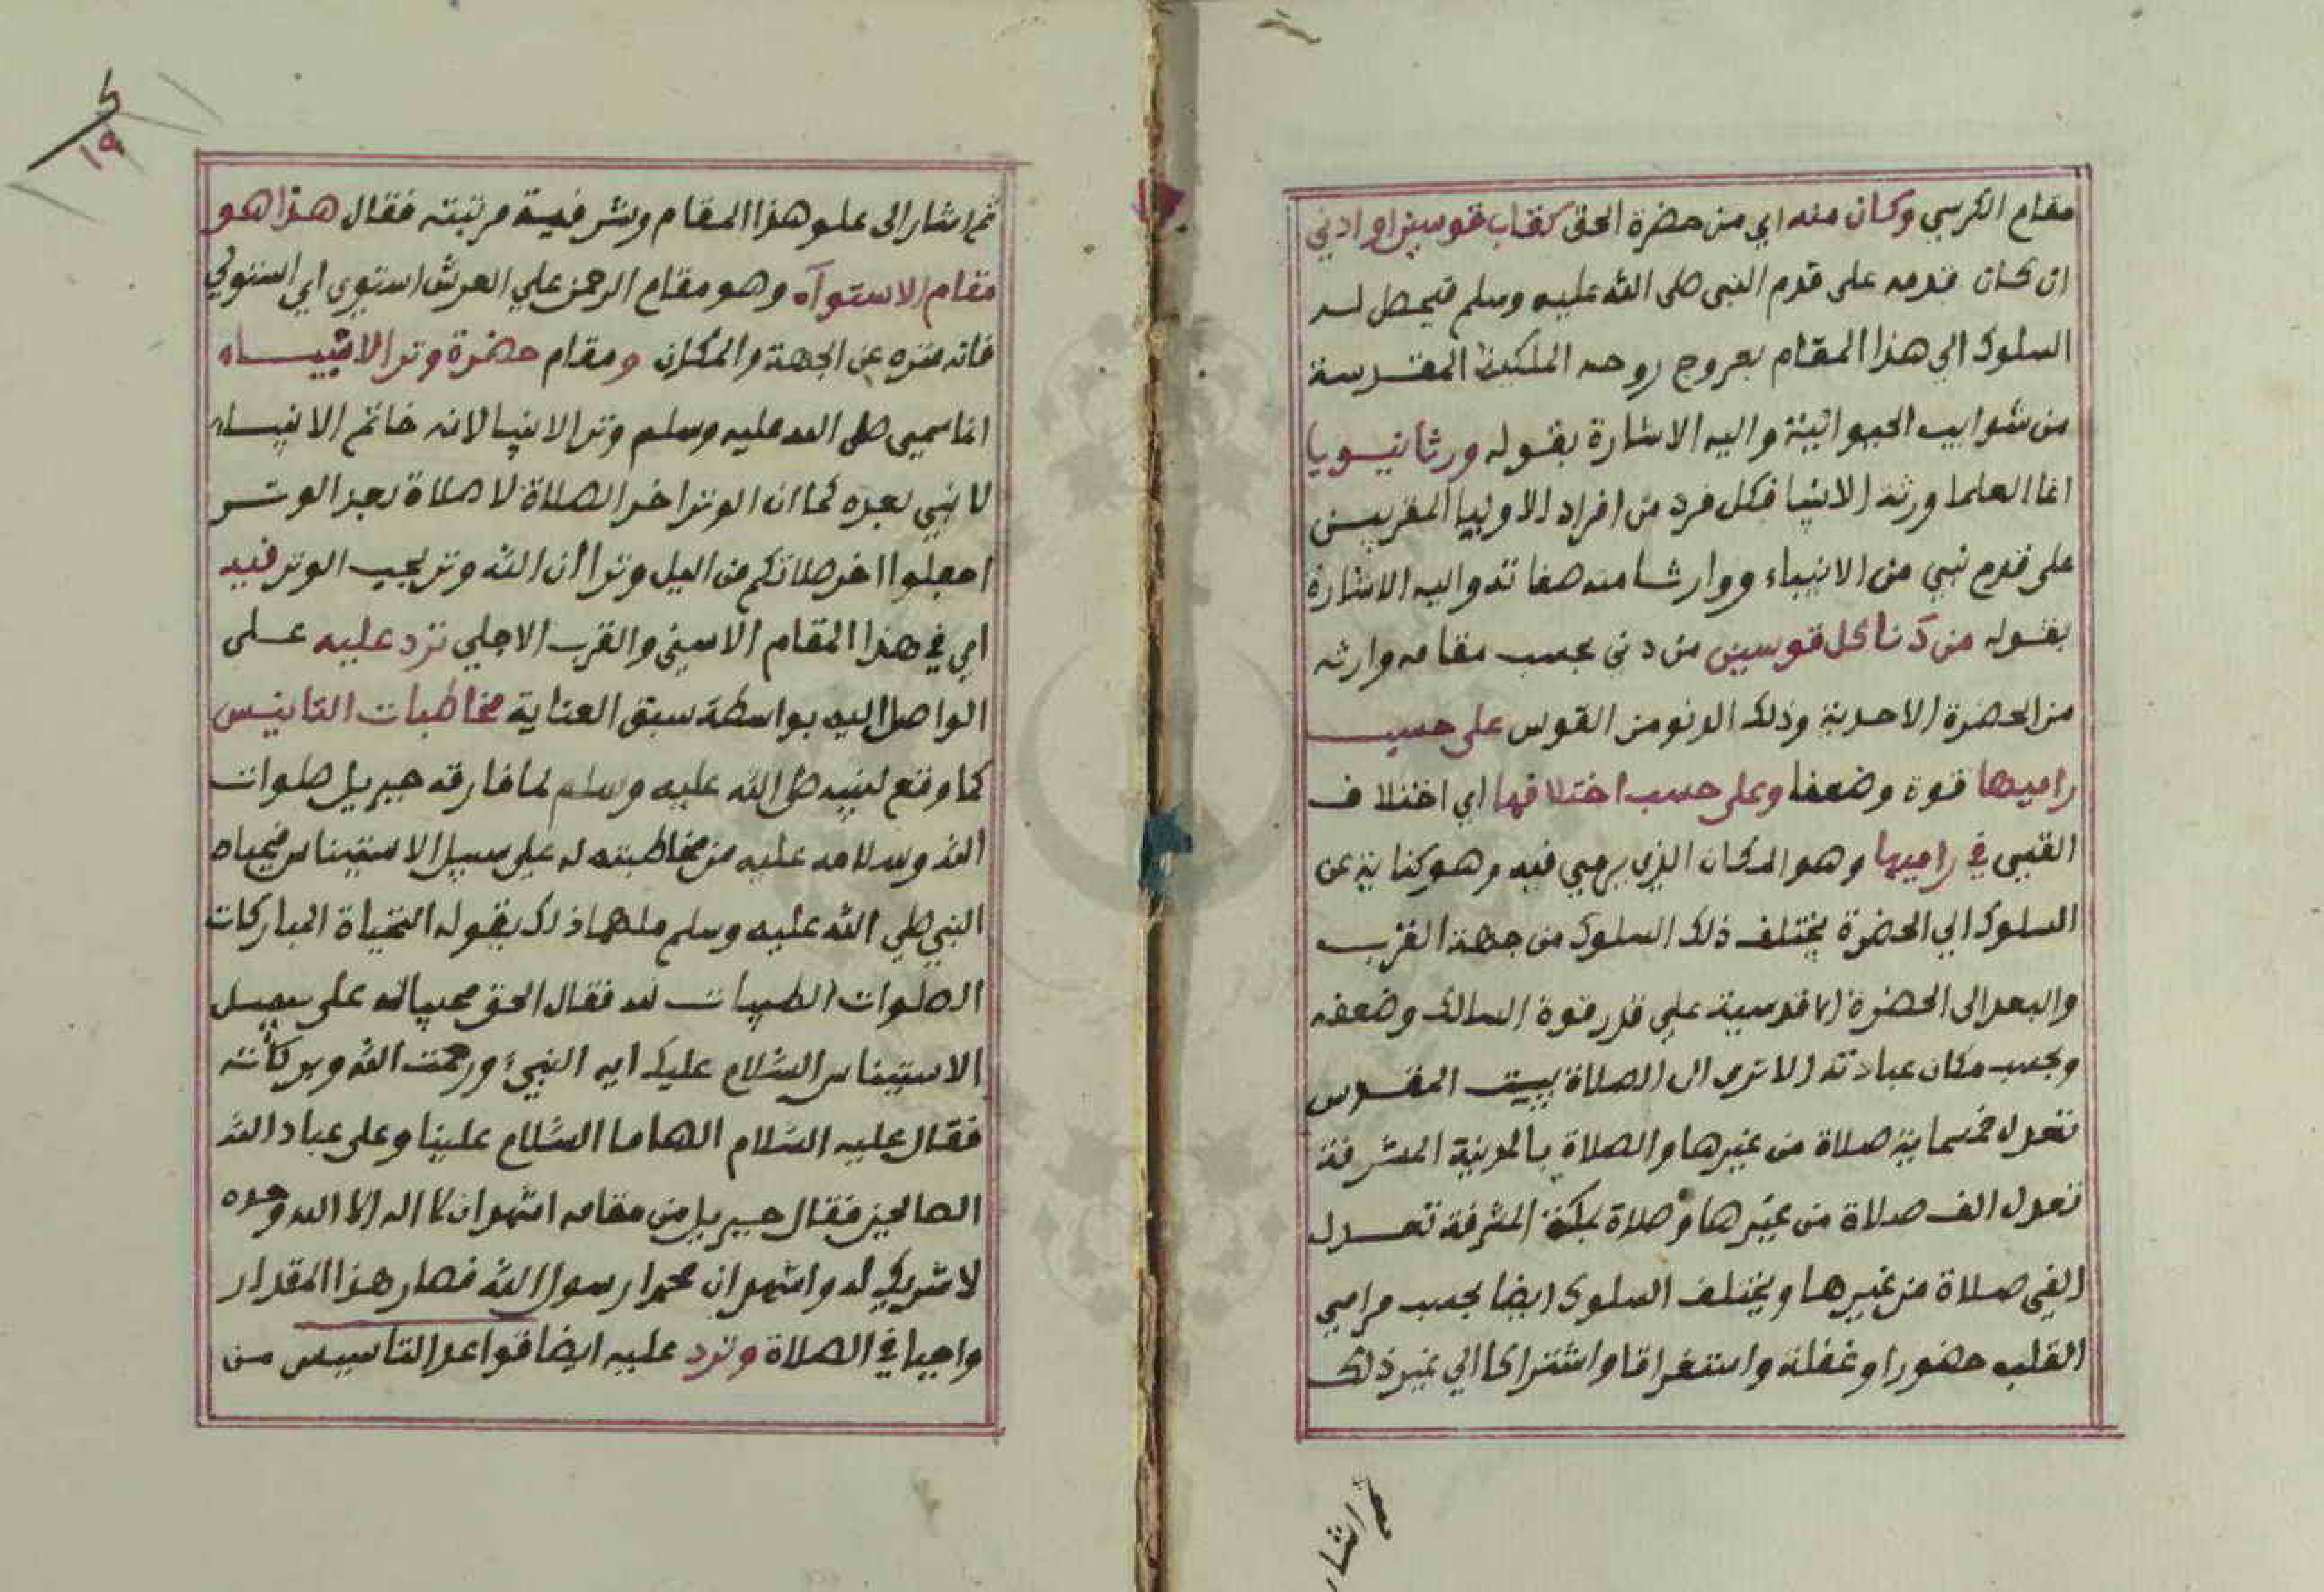 مقام الكرسي وكان منه اي من حضرة الحق كقاب قوسين او ادني
ان كان قدمه على قدم النبى صلى الله عليه وسلم فيحصل له
السلوك الي هذا المقام بعروج روحه الملكية المقدسة
من شوايب الحيوانية واليه الاشارة بقوله ورثا نبويا
انما العلما ورثة الانبيا فكل فرد من افراد الاوليا المقربين
على قدم نبي من الانبياء ووارثا منه صفاته واليه الاشارة
بقوله من دنا كل قوسين من دنى بحسب مقامه وارثه
من الحضرة الاحدية وذلك الدنو من القوس على حسب
راميها قوة وضعفا وعلى حسب اختلافها اي اختلاف
القسى في راميها وهو المكان الذي يرمي فيه وهو كناية عن
السلوك الي الحضرة يختلف ذلك السلوك من جهة القرب
والبعد الى الحضرة الاقدسية علي قدر قوة السالك وضعفه
وبحسب مكان عبادته الا ترى ان الصلاة ببيت المقدس
تعدل خمسماية صلاة من غيرها والصلاة بالمدينة المشرفة
تعدل الف صلاة من غيرها وصلاة بمكة المشرفة تعدل
الفي صلاة من غيرها ويختلف السلوك ايضا بحسب مرامي
القلب حضورا وغفلة واستغراقا واشتراكا الي غير ذلك
ثم اشار
ثم اشار الى علو هذا المقام وشرفية مرتبته فقال هذا هو
مقام الاستوآه وهو مقام الرحمن علي العرش استوي اي استولي
فانه منزه عن الجهة والمكان ومقام حضرة وتر الانبياه
انما سمي صلى الله عليه وسلم وتر الانبيا لانه خاتم الانبياه
لا نبي بعده كما ان الوتر اخر الصلاة لا صلاة بعد الوتر
اجعلوا اخر صلاتكم من اليل وترا ان الله وتر يحب الوتر فيه
اي في هذا المقام الاسنى والقرب الاجلي ترد عليه على
الواصل اليه بواسطة سبق العناية مخاطبات التانيس
كما وقع لنبيه صلى الله عليه وسلم لما فارقه جبريل صلوات
الله وسلامه عليه من مخاطبته له على سبيل الاستيناس فحياه
النبي صلي الله عليه وسلم ملهما ذلك بقوله التحياة المباركات
الصلوات الطيبات لله فقال الحق محيياله على سبيل
الاستيناس السلام عليك ايه النبيء ورحمت الله وبركاته
فقال عليه السلام الهاما السلام علينا وعلى عباد الله
الصالحين فقال جبريل من مقامه اشهد ان لا اله الا الله وحده
لا شريك له واشهد ان محمدا رسول الله فصار هذا المقدار
واجبا في الصلاة وترد عليه ايضا قواعد التاسيس من
١٩